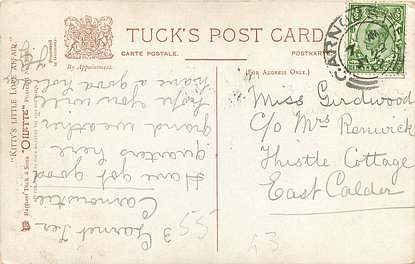 TUCK'S POST CARD
CARTE POSTALE.
POSTKARTE
By Appointment.
(FOR ADDRESS ONLY.)
CARNOUSTIE
Miss Girdwood
C/o Mrs Renwick
Thistle Cottage
East Calder
3 Garnet Ter
Carnoustie
Have got good
quarters here
grand weather
hope you will
have a good holi
"KITTY'S LITTLE LOVE AFFAIR."
Raphael Tuck & Sons' "OILETTE"
55
53